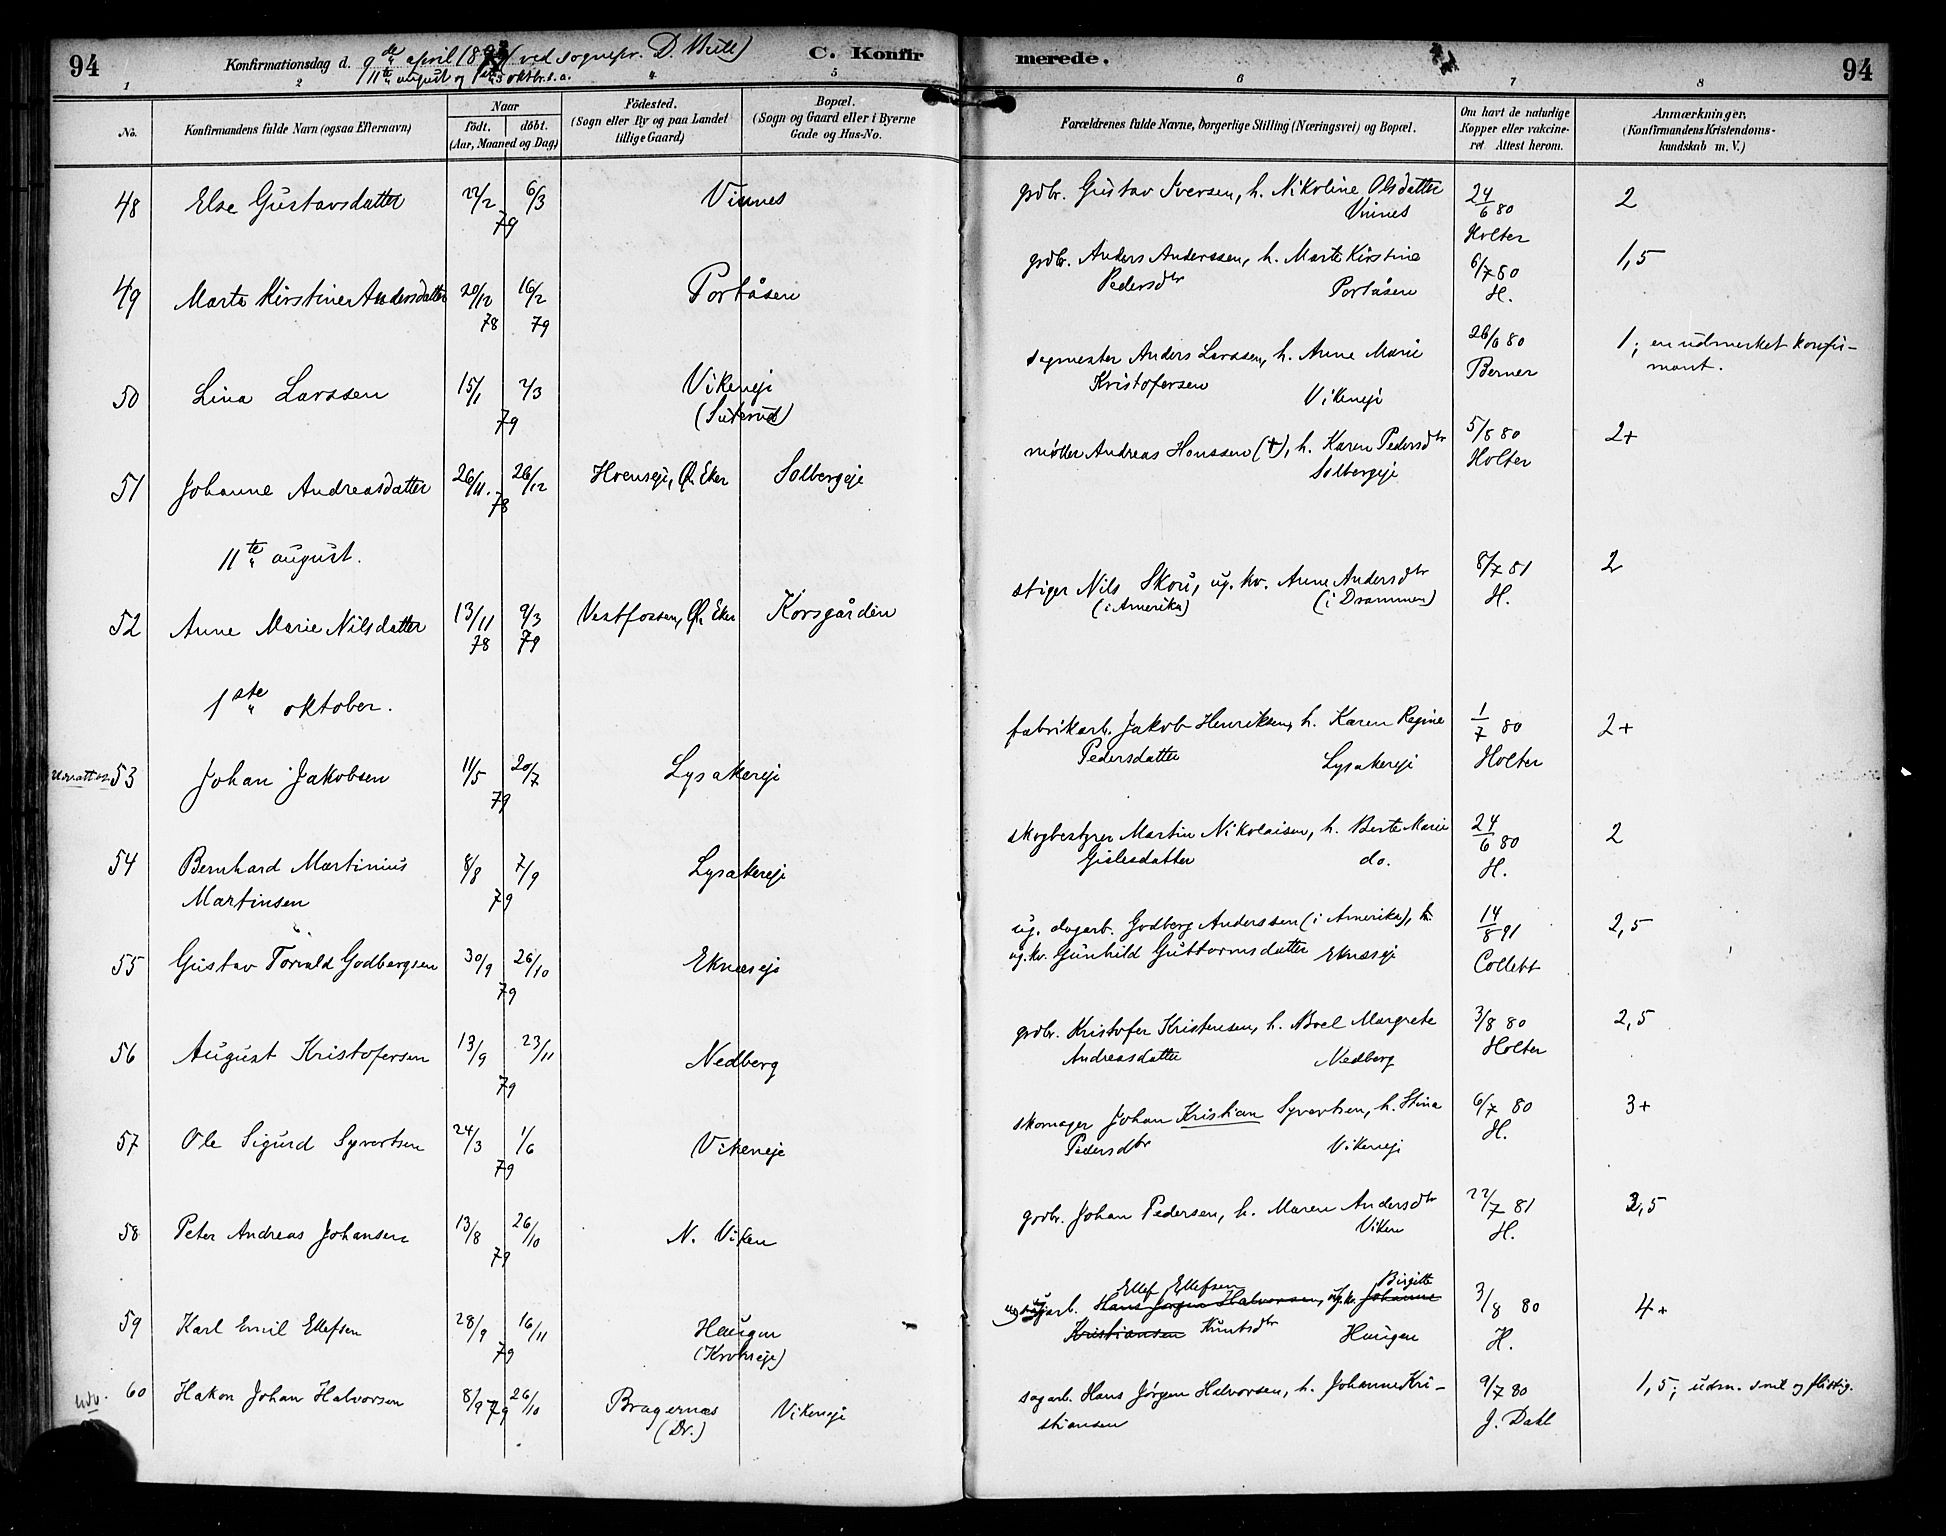 94
Konfirmationsdag d. 9de april 189 (ved sognepr. D. Bull)
11te august og 1ste oktbr. s.a.
C. Konfir merede.
94
1 2 3 4 5 6 7 8
No.
Konfirmandens fulde Navn (ogsaa Efternavn)
Naar
født. døbt.
(Aar, Maaned og Dag)
Fødested.
(Sogn eller By og paa Landet tillige Gaard)
Bopæl.
(Sogn og Gaard eller i Byerne Gade og Hus-No.
Forældrenes fulde Navne, borgerlige Stilling (Næringsvei) og Bopæl.
Om havt de naturlige Kopper eller vakcineret. Attest herom.
Anmærkninger.
(Konfirmandens Kristendomskundskab m. V.)
48 Else Gustavsdatter 22/2 6/3 79 Vinnes grdbr. Gustav Iversen, h. Nikoline Olsdatter Vinnes 24/6 80 Holter 2
49 Marte Kirstine Andersdatter 20/12 78 16/2 79 Portåsen grdbr. Anders Anderssen, h. Marte Kirstine Pedersdtr Portåsen 6/7 80 H. 1,5
50 Lina Larssen 15/1 2/3 79 Vikeneje (Suterud) sagmester Anders Larssen, h. Anne Marie Kristofersen Vikeneje 26/6 80 Berner 1; en udmerket konfirmant.
51 Johanne Andreasdatter 26/11. 26/12 78 Hoenseje, Ø. Eker Solbergeje møller Andreas Hanssen (+), h. Karen Pedersdtr Solbergeje 5/8 80 Holter 2+
11te august.
52 Anne Marie Nilsdatter 13/11 78 9/3 79 Vestfossen, Ø. Eker Korsgården stiger Nils Skou, ug. kv. Anne Andersdtr (i Amerika) (i Drammen) 8/7 81 H. 2
1ste oktober.
53 Johan Jakobsen 11/5 20/7 79 Lysakereje fabrikarb. Jakob Henriksen, h. Karen Regine Pedersdatter Lysakereje 1/7 80 Holter 2+
54 Bernhard Martinius Martinsen 8/8 7/9 79 Lysakereje skogbestyrer Martin Nikolaisen, h. Berte Marie Gislesdatter do. 24/6 80 H. 2
55 Gustav Torvald Godbergsen 30/9 26/10 79 Eknæseje ug. dagarb. Godberg Anderssen (i Amerika), ug. kv. Gunhild Guttormsdatter Eknæseje 14/8 91 Collett 2,5
56 August Kristofersen 13/9 23/11 79 Nedberg grdbr. Kristofer Kristensen, h. Boel Margrete Andreasdatter Nedberg 3/8 80 Holter 2,5
57 Ole Sigurd Syvertsen 24/3 1/6 79 Vikeneje skomager Johan Kristian Syvertsen, h. Stina Pedersdtr Vikeneje 6/7 80 H. 3+
58 Peter Andreas Johansen 13/8 26/10 79 N. Viken grdbr. Johan Pedersen, h. Maren Andersdtr Viken 22/7 81 H. 3,5
59 Karl Emil Ellefsen 28/9 16/11 79 Haugen (Krokseje) Ellef Ellefsen Hans Jørgen Halvorsen, ug. kv. Birgitte Johanne Kristiansen Knutsdtr Haugen 3/8 80 H. 4+
60 Hakon Johan Halvorsen 8/9 79 26/10 Bragernæs (Dr.) Vikeneje sagarb. Hans Jørgen Halvorsen, h. Johanne Kristiansen 9/7 80 J. Dahl 1,5; udm. snil og flittig.